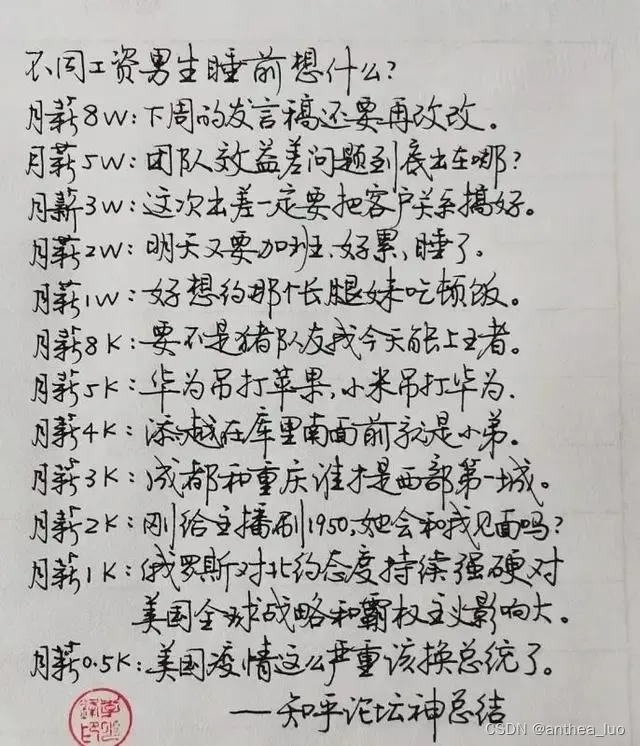 不同工资男生睡前想什么?
月薪8W:下周的发言稿还要再改改。
月薪5W:团队效益差问题到底出在哪?
月薪3W:这次出差一定要把客户关系搞好。
月薪2W:明天又要加班、好累,睡了.
月薪1W:好想约那个长腿妹吃顿饭。
月薪8K:要不是猪队友我今天能上王者。
月薪5K:华为吊打苹果,小米吊打华为.
月薪4K:添越在库里南面前就是小弟。
月薪3K:成都和重庆谁才是西部第一城。
月薪2K:刚给主播刷1950,她会和我见面吗?
月薪1K:俄罗斯对北约态度持续强硬,对
美国全球战略和霸权主义影响大。
月薪0.5K:美国疫情这么严重该换总统了。
——知乎论坛神总结
CSDN @anthea_luo